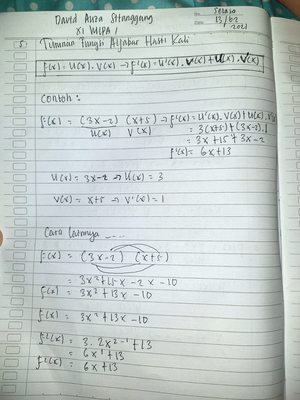 David Auza Sitanggang
XI MIPA 1
Selasa
13/02
2021
5) Turunan Fungsi Aljabar Hasil Kali
f(x) = U(x) . V(x) → f'(x) = U'(x) . V(x) + U(x) . V'(x)
Contoh :
f(x) = (3x-2) (x+5) → f'(x) = U'(x) . V(x) + U(x) . V'(x)
U(x) V(x) = 3(x+5) + (3x-2) . 1
= 3x + 15 + 3x - 2
f'(x) = 6x + 13
U(x) = 3x-2 → U'(x) = 3
V(x) = x+5 → V'(x) = 1
Cara lainnya ....
f(x) = (3x-2) (x+5)
= 3x² + 15x - 2x - 10
f(x) = 3x² + 13x - 10
f(x) = 3x² + 13x - 10
f'(x) = 3 . 2x²⁻¹ + 13
= 6x¹ + 13
f'(x) = 6x + 13